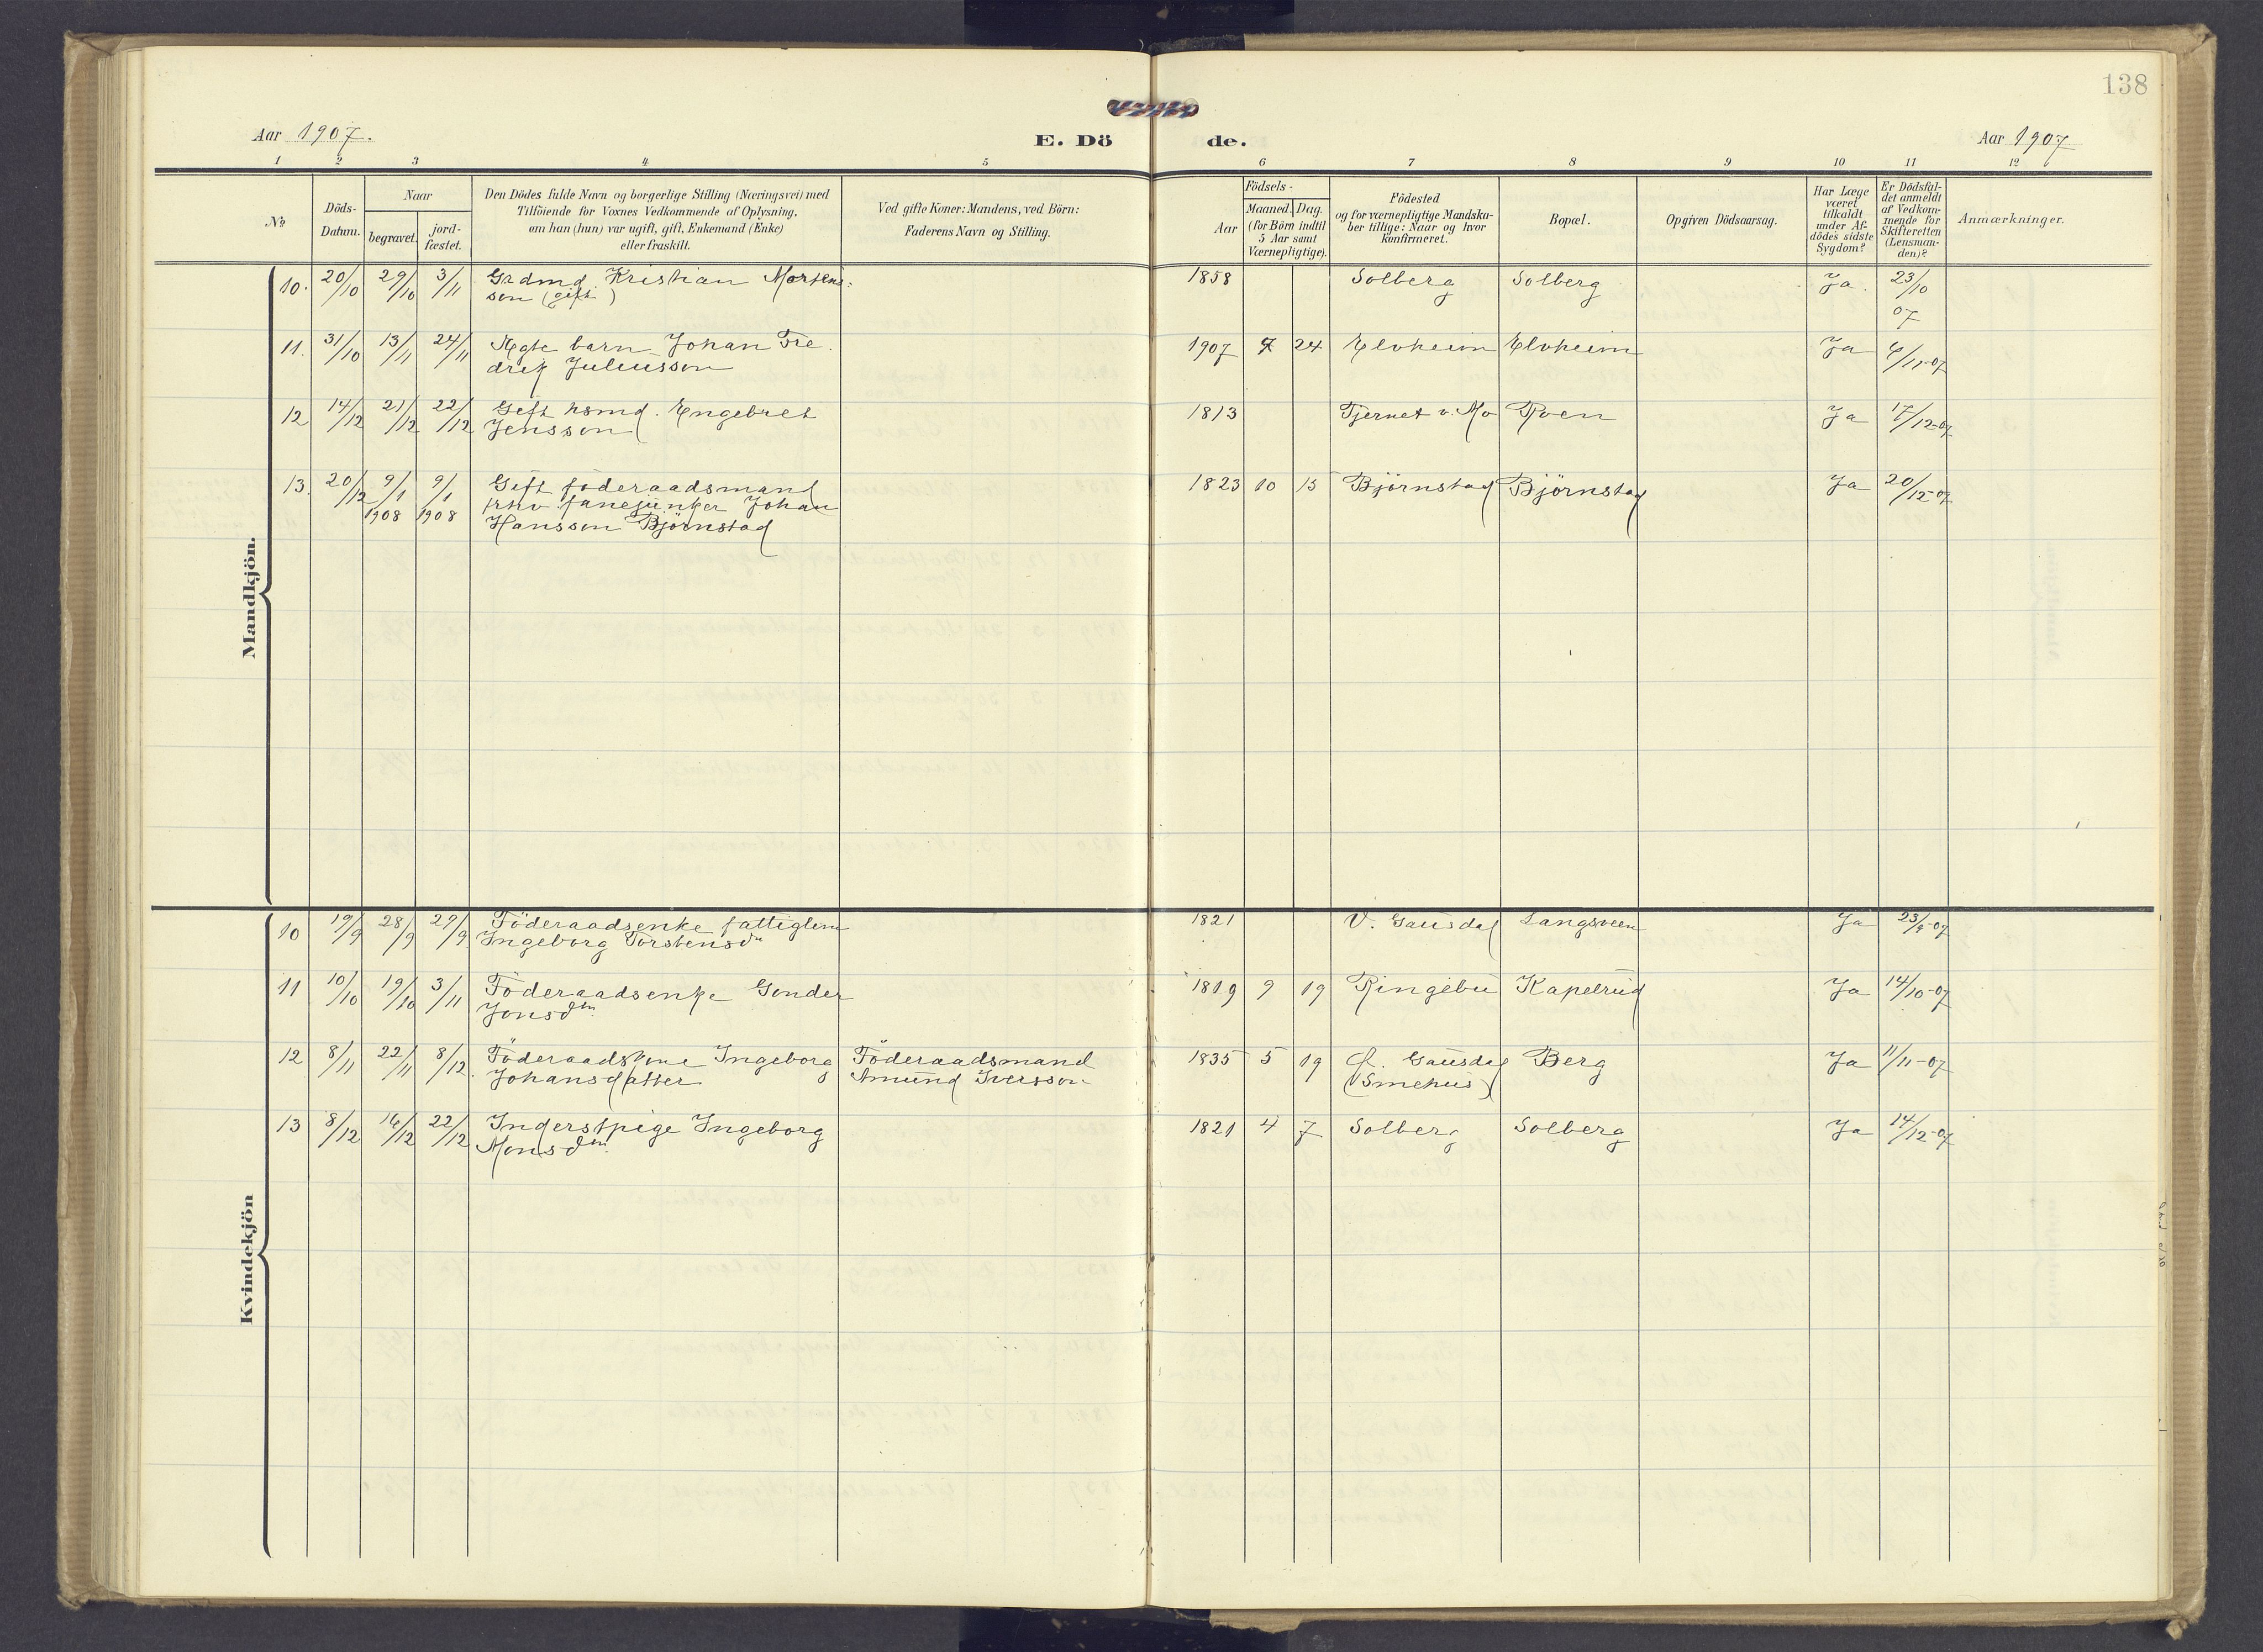 138
Aar 1907.
E. Dö
de.
Aar 1907
1 2 3 4 5 6 7 8 9 10 11 12
No
Döds-
Datum.
Naar
begravet.
jord-
fæstet.
Den Dödes fulde Navn og borgerlige Stilling (Næringsvei) med
Tilföiende for Voxnes Vedkommende af Oplysning,
om han (hun) var ugift, gift, Enkemand (Enke)
eller fraskilt.
Ved gifte Koner: Mandens, ved Börn:
Faderens Navn og Stilling.
Födsels-
Aar
Maaned. Dag.
(for Börn indtil
5 Aar samt
Værnepligtige).
Födested
og for værnepligtige Mandska-
ber tillige: Naar og hvor
konfirmeret.
Bopæl.
Opgiven Dödsaarsag.
Har Læge
været
tilkaldt
under Af-
dödes sidste
Sygdom?
Er Dödsfal-
det anmeldt
af Vedkom-
mende for
Skifteretten
(Lensman-
den)?
Anmærkninger.
Mandkjön.
10. 20/10 29/10 3/11 Grdmd. Kristian Mortens-
son (gift) 1858 Solberg Solberg Ja. 23/10
07
11. 31/10 13/11 24/11 Ægte barn Johan Fre
drik Juliusson 1907 7 24 Elvheim Elvheim Ja 6/11-07
12 14/12 21/12 22/12 Gift hsmd. Engebret
Jensson 1813 Tjernet v. Mo Roen Ja 17/12-07
13. 20/12 9/1 1908 9/1 1908 Gift föderaadsmand
fhv fanejunker Johan
Hansson Björnstad 1823 10 15 Björnstad Björnstad Ja 20/12-07
Kvindekjön
10 19/9 28/9 29/9 Föderaadsenke fattiglem
Ingeborg Torstensdr 1821 V. Gausdal Langsveen Ja 23/9-07
11 10/10 19/10 3/11 Föderaadsenke Gunder
Jonsdtr. 1819 9 19 Ringebu Kapelrud Ja 14/10-07
12 8/11 22/11 8/12. Föderaadskone Ingeborg Föderaadsmand
Johansdatter Amund Iversson 1835 5 19 Ö. Gausdal Berg Ja 11/11-07
(Smehus)
13 8/12 16/12 22/12 Inderstpige Ingeborg
Monsdtr. 1821 4 7 Solberg Solberg Ja 14/12-07